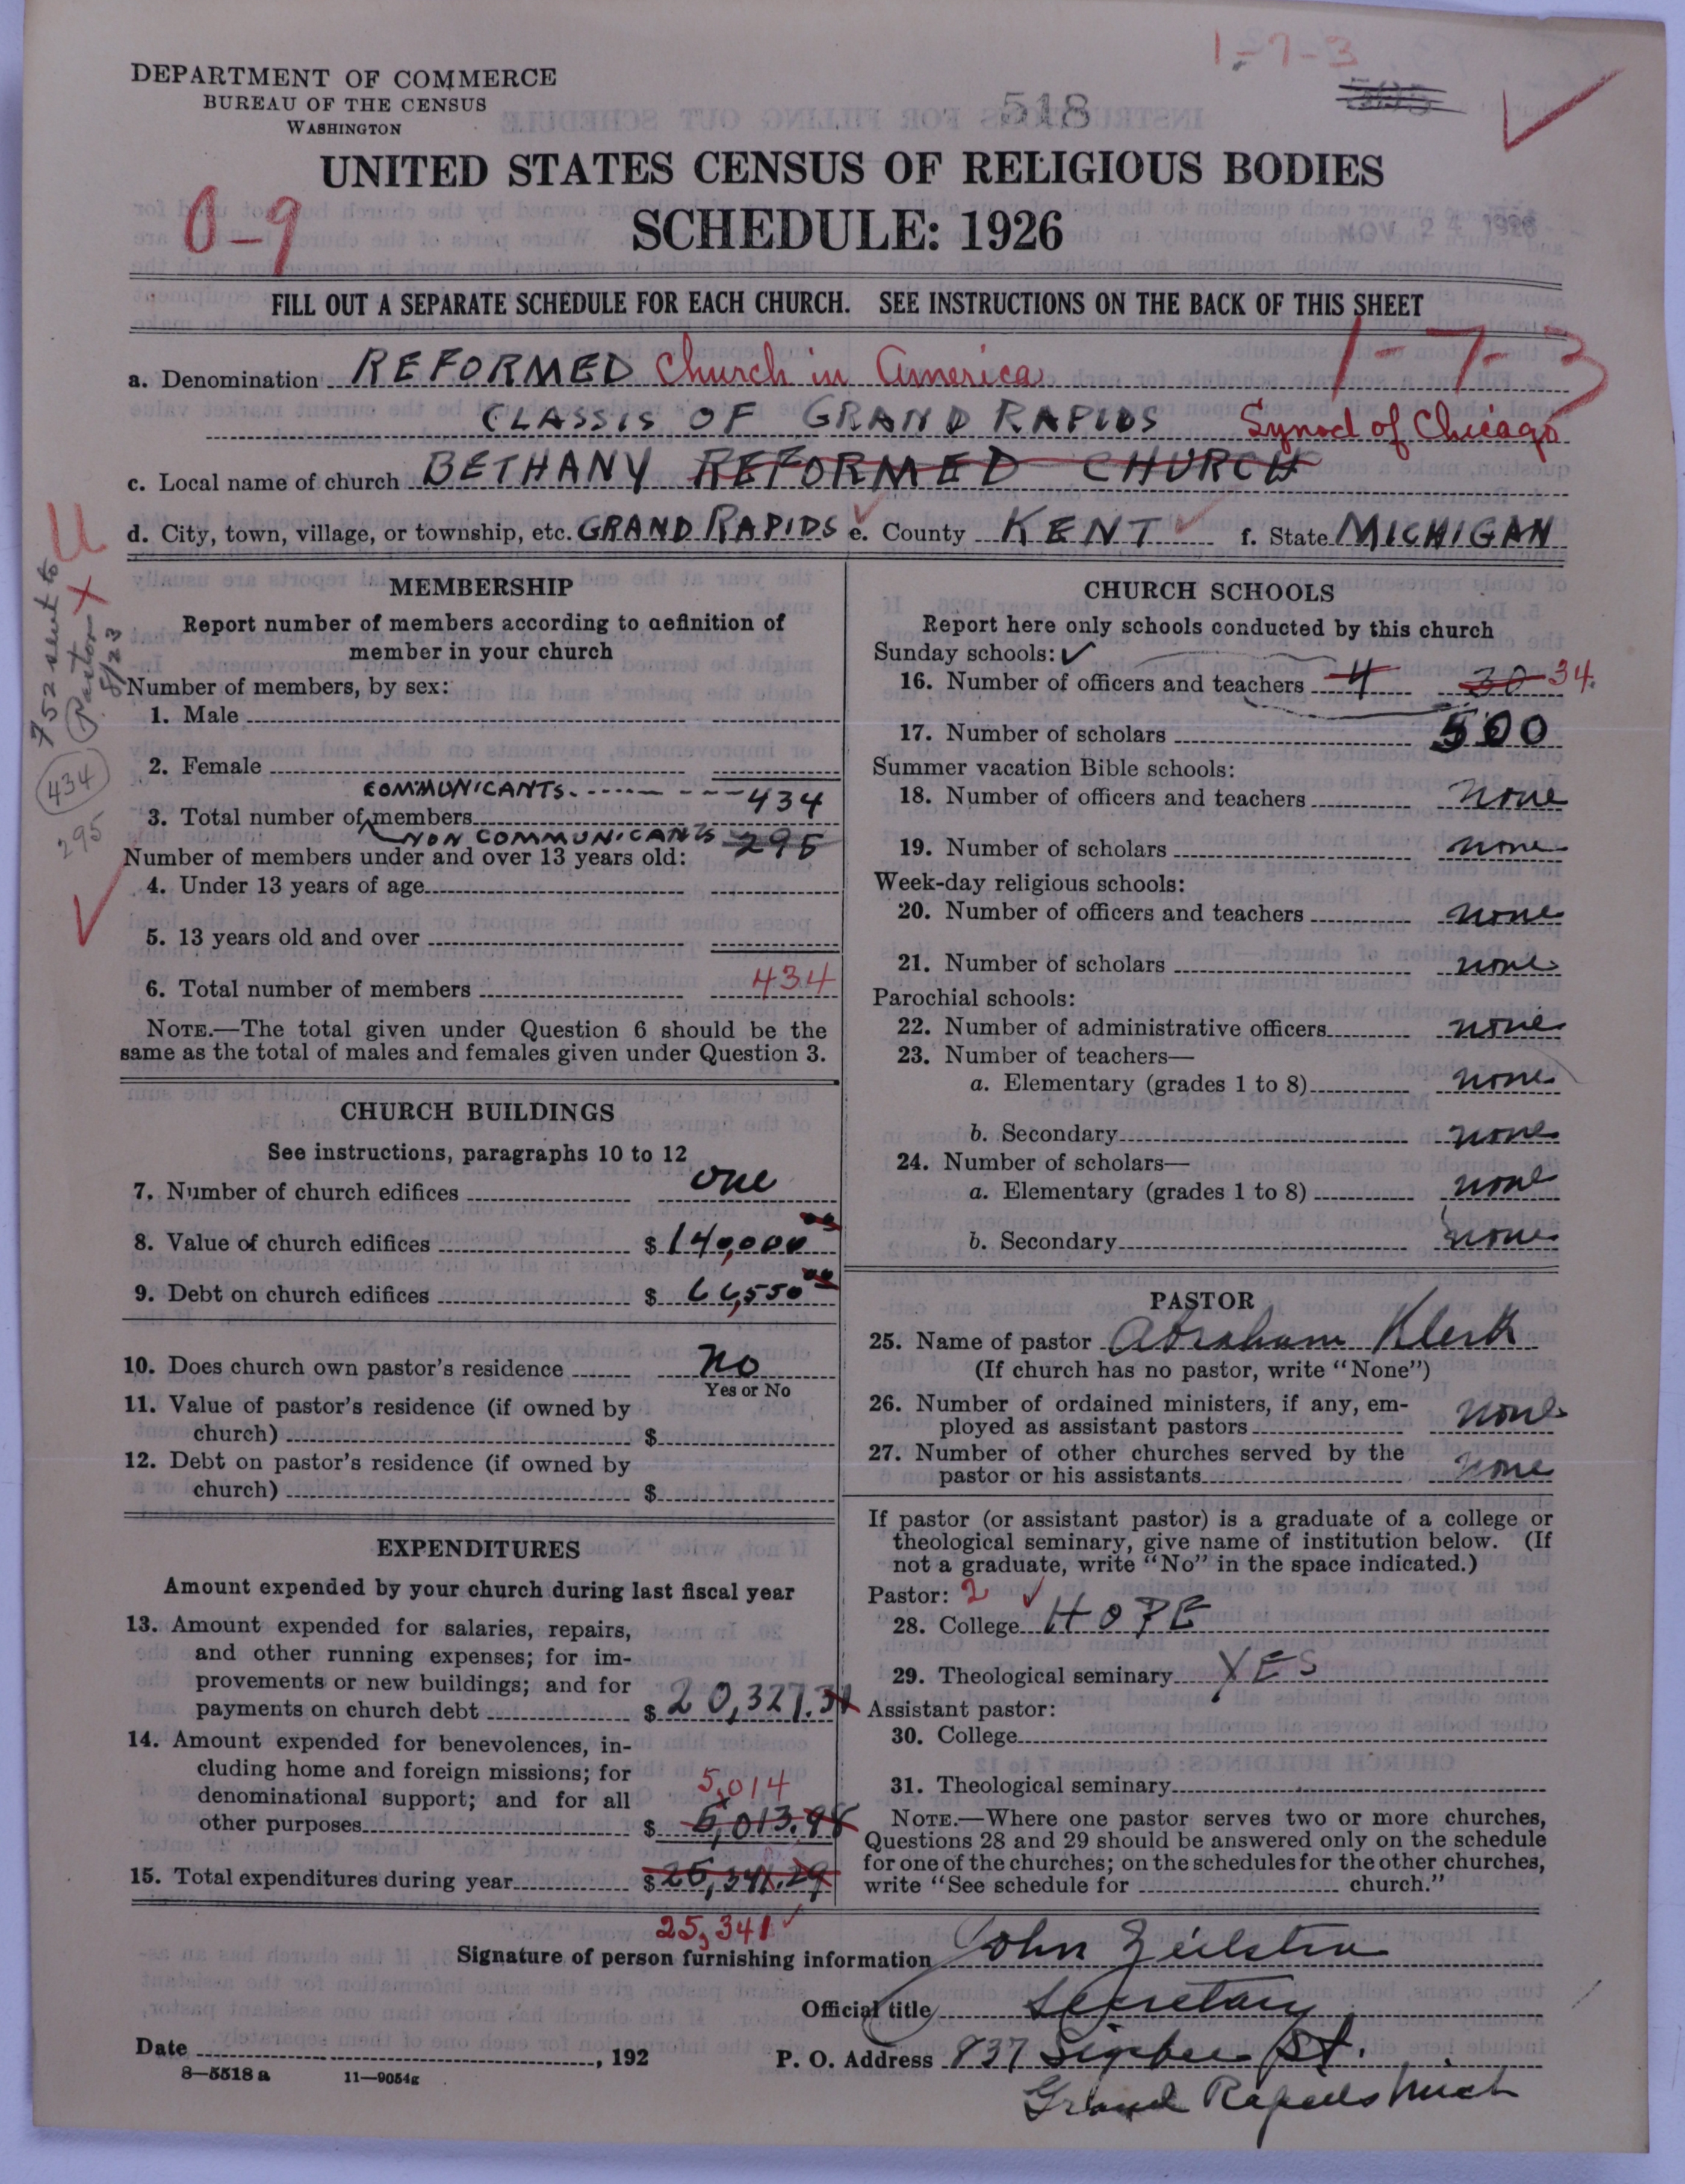 1-7-3
DEPARTMENT OF COMMERCE
BUREAU OF THE CENSUS
WASHINGTON
518
UNITED STATES CENSUS OF RELIGIOUS BODIES
0-9
SCHEDULE: 1926
NOV 24 1926
FILL OUT A SEPARATE SCHEDULE FOR EACH CHURCH. SEE INSTRUCTIONS ON THE BACK OF THIS SHEET
1-7-3
a. Denomination REFORMED Church in America
CLASSIS OF GRAND RAPIDS Synod of Chicago
c. Local name of church BETHANY REFORMED CHURCH
d. City, town, village, or township, etc. GRAND RAPIDS e. County KENT f. State MICHIGAN
752 sent to
Pastor X
8/23
434
295
MEMBERSHIP
Report number of members according to definition of
member in your church
Number of members, by sex:
1. Male
2. Female
COMMUNICANTS. 434
3. Total number of members
NON COMMUNICANTS 295
Number of members under and over 13 years old:
4. Under 13 years of age
5. 13 years old and over
6. Total number of members 434
NOTE.—The total given under Question 6 should be the
same as the total of males and females given under Question 3.
CHURCH BUILDINGS
See instructions, paragraphs 10 to 12
7. Number of church edifices one
8. Value of church edifices $ 140,000 00
9. Debt on church edifices $ 66,550 00
10. Does church own pastor's residence No
Yes or No
11. Value of pastor's residence (if owned by
church) $
12. Debt on pastor's residence (if owned by
church) $
EXPENDITURES
Amount expended by your church during last fiscal year
13. Amount expended for salaries, repairs,
and other running expenses; for im-
provements or new buildings; and for
payments on church debt $ 20,327.31
14. Amount expended for benevolences, in-
cluding home and foreign missions; for
denominational support; and for all
5,014
other purposes $ 5,013.98
15. Total expenditures during year $ 25,341.29
25,341
CHURCH SCHOOLS
Report here only schools conducted by this church
Sunday schools:
16. Number of officers and teachers 4 30 34.
17. Number of scholars 500
Summer vacation Bible schools:
18. Number of officers and teachers none
19. Number of scholars none
Week-day religious schools:
20. Number of officers and teachers none
21. Number of scholars none
Parochial schools:
22. Number of administrative officers none
23. Number of teachers—
a. Elementary (grades 1 to 8) none
b. Secondary none
24. Number of scholars—
a. Elementary (grades 1 to 8) none
b. Secondary none
PASTOR
25. Name of pastor Abraham Klerk
(If church has no pastor, write "None")
26. Number of ordained ministers, if any, em-
ployed as assistant pastors none
27. Number of other churches served by the
pastor or his assistants none
If pastor (or assistant pastor) is a graduate of a college or
theological seminary, give name of institution below. (If
not a graduate, write "No" in the space indicated.)
Pastor: 2
28. College HOPE
29. Theological seminary YES
Assistant pastor:
30. College
31. Theological seminary
NOTE.—Where one pastor serves two or more churches,
Questions 28 and 29 should be answered only on the schedule
for one of the churches; on the schedules for the other churches,
write "See schedule for church."
Signature of person furnishing information John Zeilstra
Official title Secretary
Date , 192
P. O. Address 837 St.
Grand Rapids Mich
8—5518 a 11—9054g